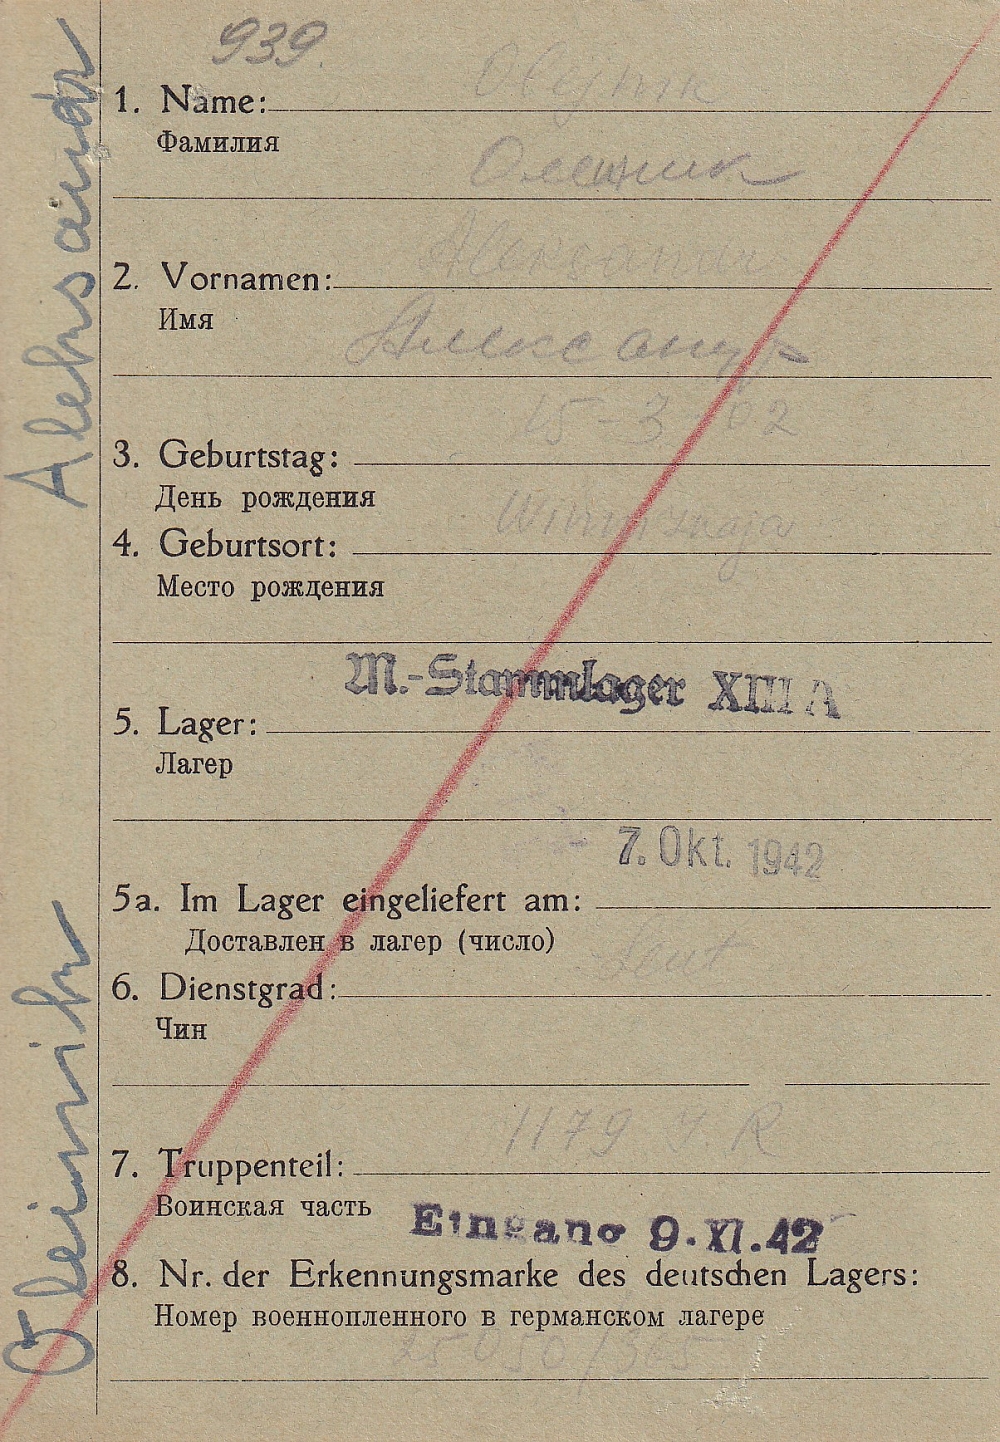 939.
Olejnik
1. Name:
Фамилия
Олейник
Alexsandr
2. Vornamen:
Имя
Александр
15-3-02
3. Geburtstag:
День рождения
Winnizkaja
4. Geburtsort:
Место рождения
M.-Stammlager XIII A
5. Lager:
Лагер
7. Okt. 1942
5a. Im Lager eingeliefert am:
Доставлен в лагер (число)
Leut
6. Dienstgrad:
Чин
1179 I. R
7. Truppenteil:
Воинская часть
Eingang 9.XI.42
8. Nr. der Erkennungsmarke des deutschen Lagers:
Номер военнопленного в германском лагере
Oleinik Aleksandr